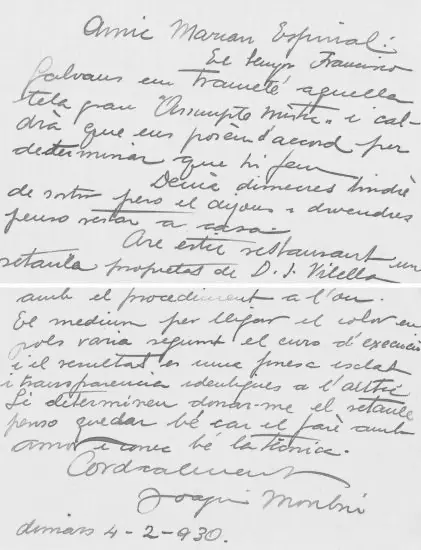 Amic Marian Espinal:
El senyo Francisco
Galvans em trameté aquella
tela gran "Assumpte místic" i cal-
drà que ens posem d'accord per
determinar que hi fem
Demà dimecres tindré
de sortir pero el dijous i divendres
penso restar a casa.
Are estic restaurant un
retaule propietat de D. J. Vilella
amb el procediment a l'ou.
El medium per lligar el color en
pols varia segunt el curs d'execució
i el resultat es una finesa esclat
i transparencia identiques a l'antic
Si determineu donar-me el retaule
penso quedar bé car el faré amb
amor i conec bé la tècnica.
Cordialment
Joaquim
dimars 4-2-930.